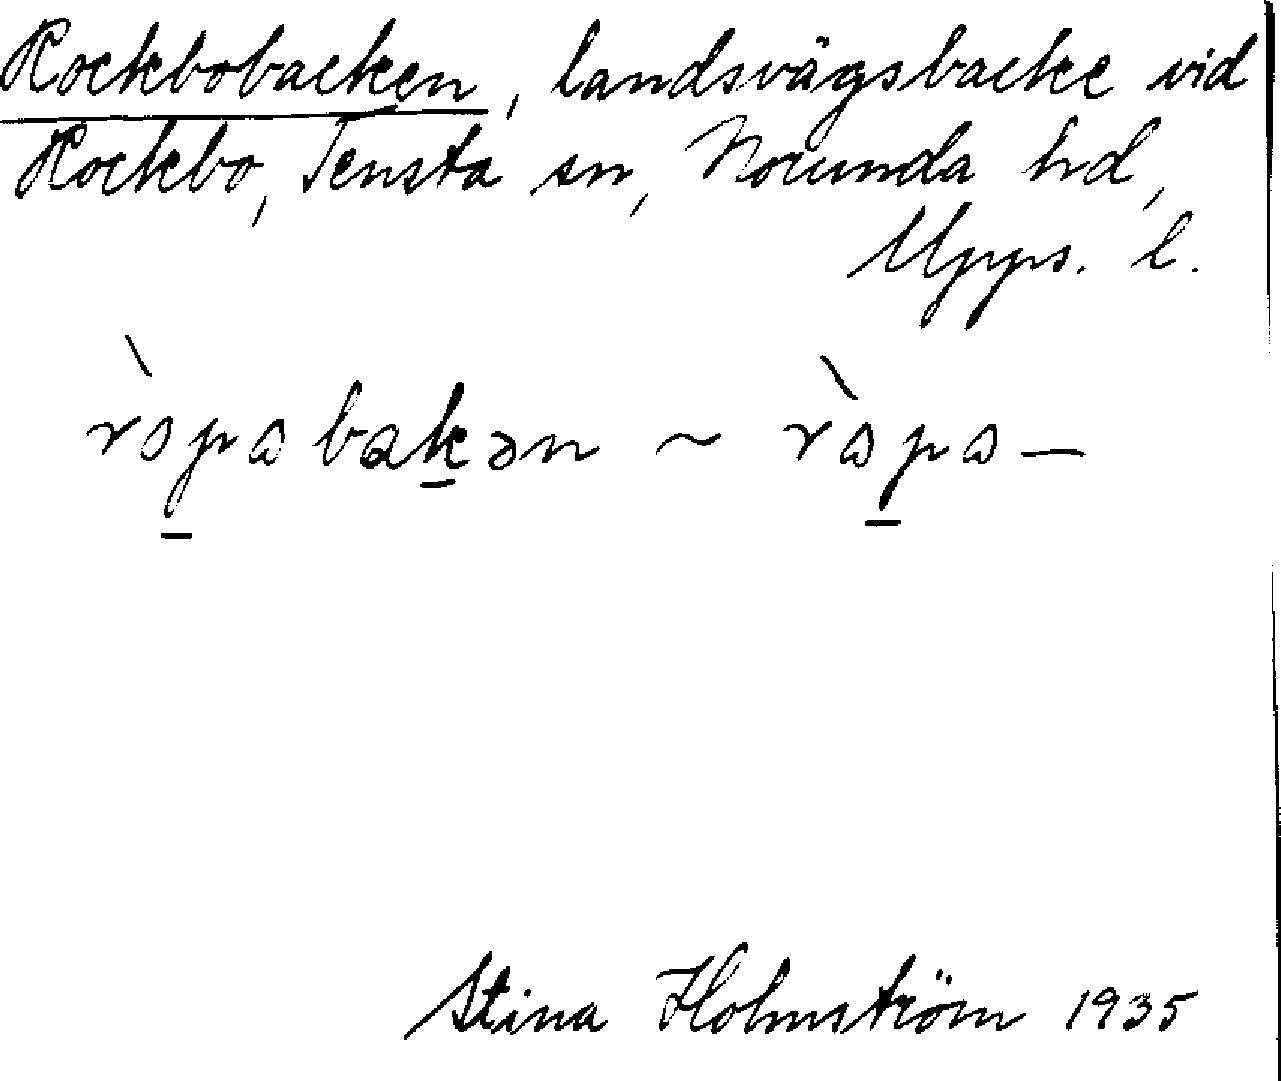 Rockbobacken, landsvägsbacke vid
Rockbo, Tensta sn, Norunda hd,
Upps. l.
ròpabakən ~ ròpa—
Stina Holmström 1935